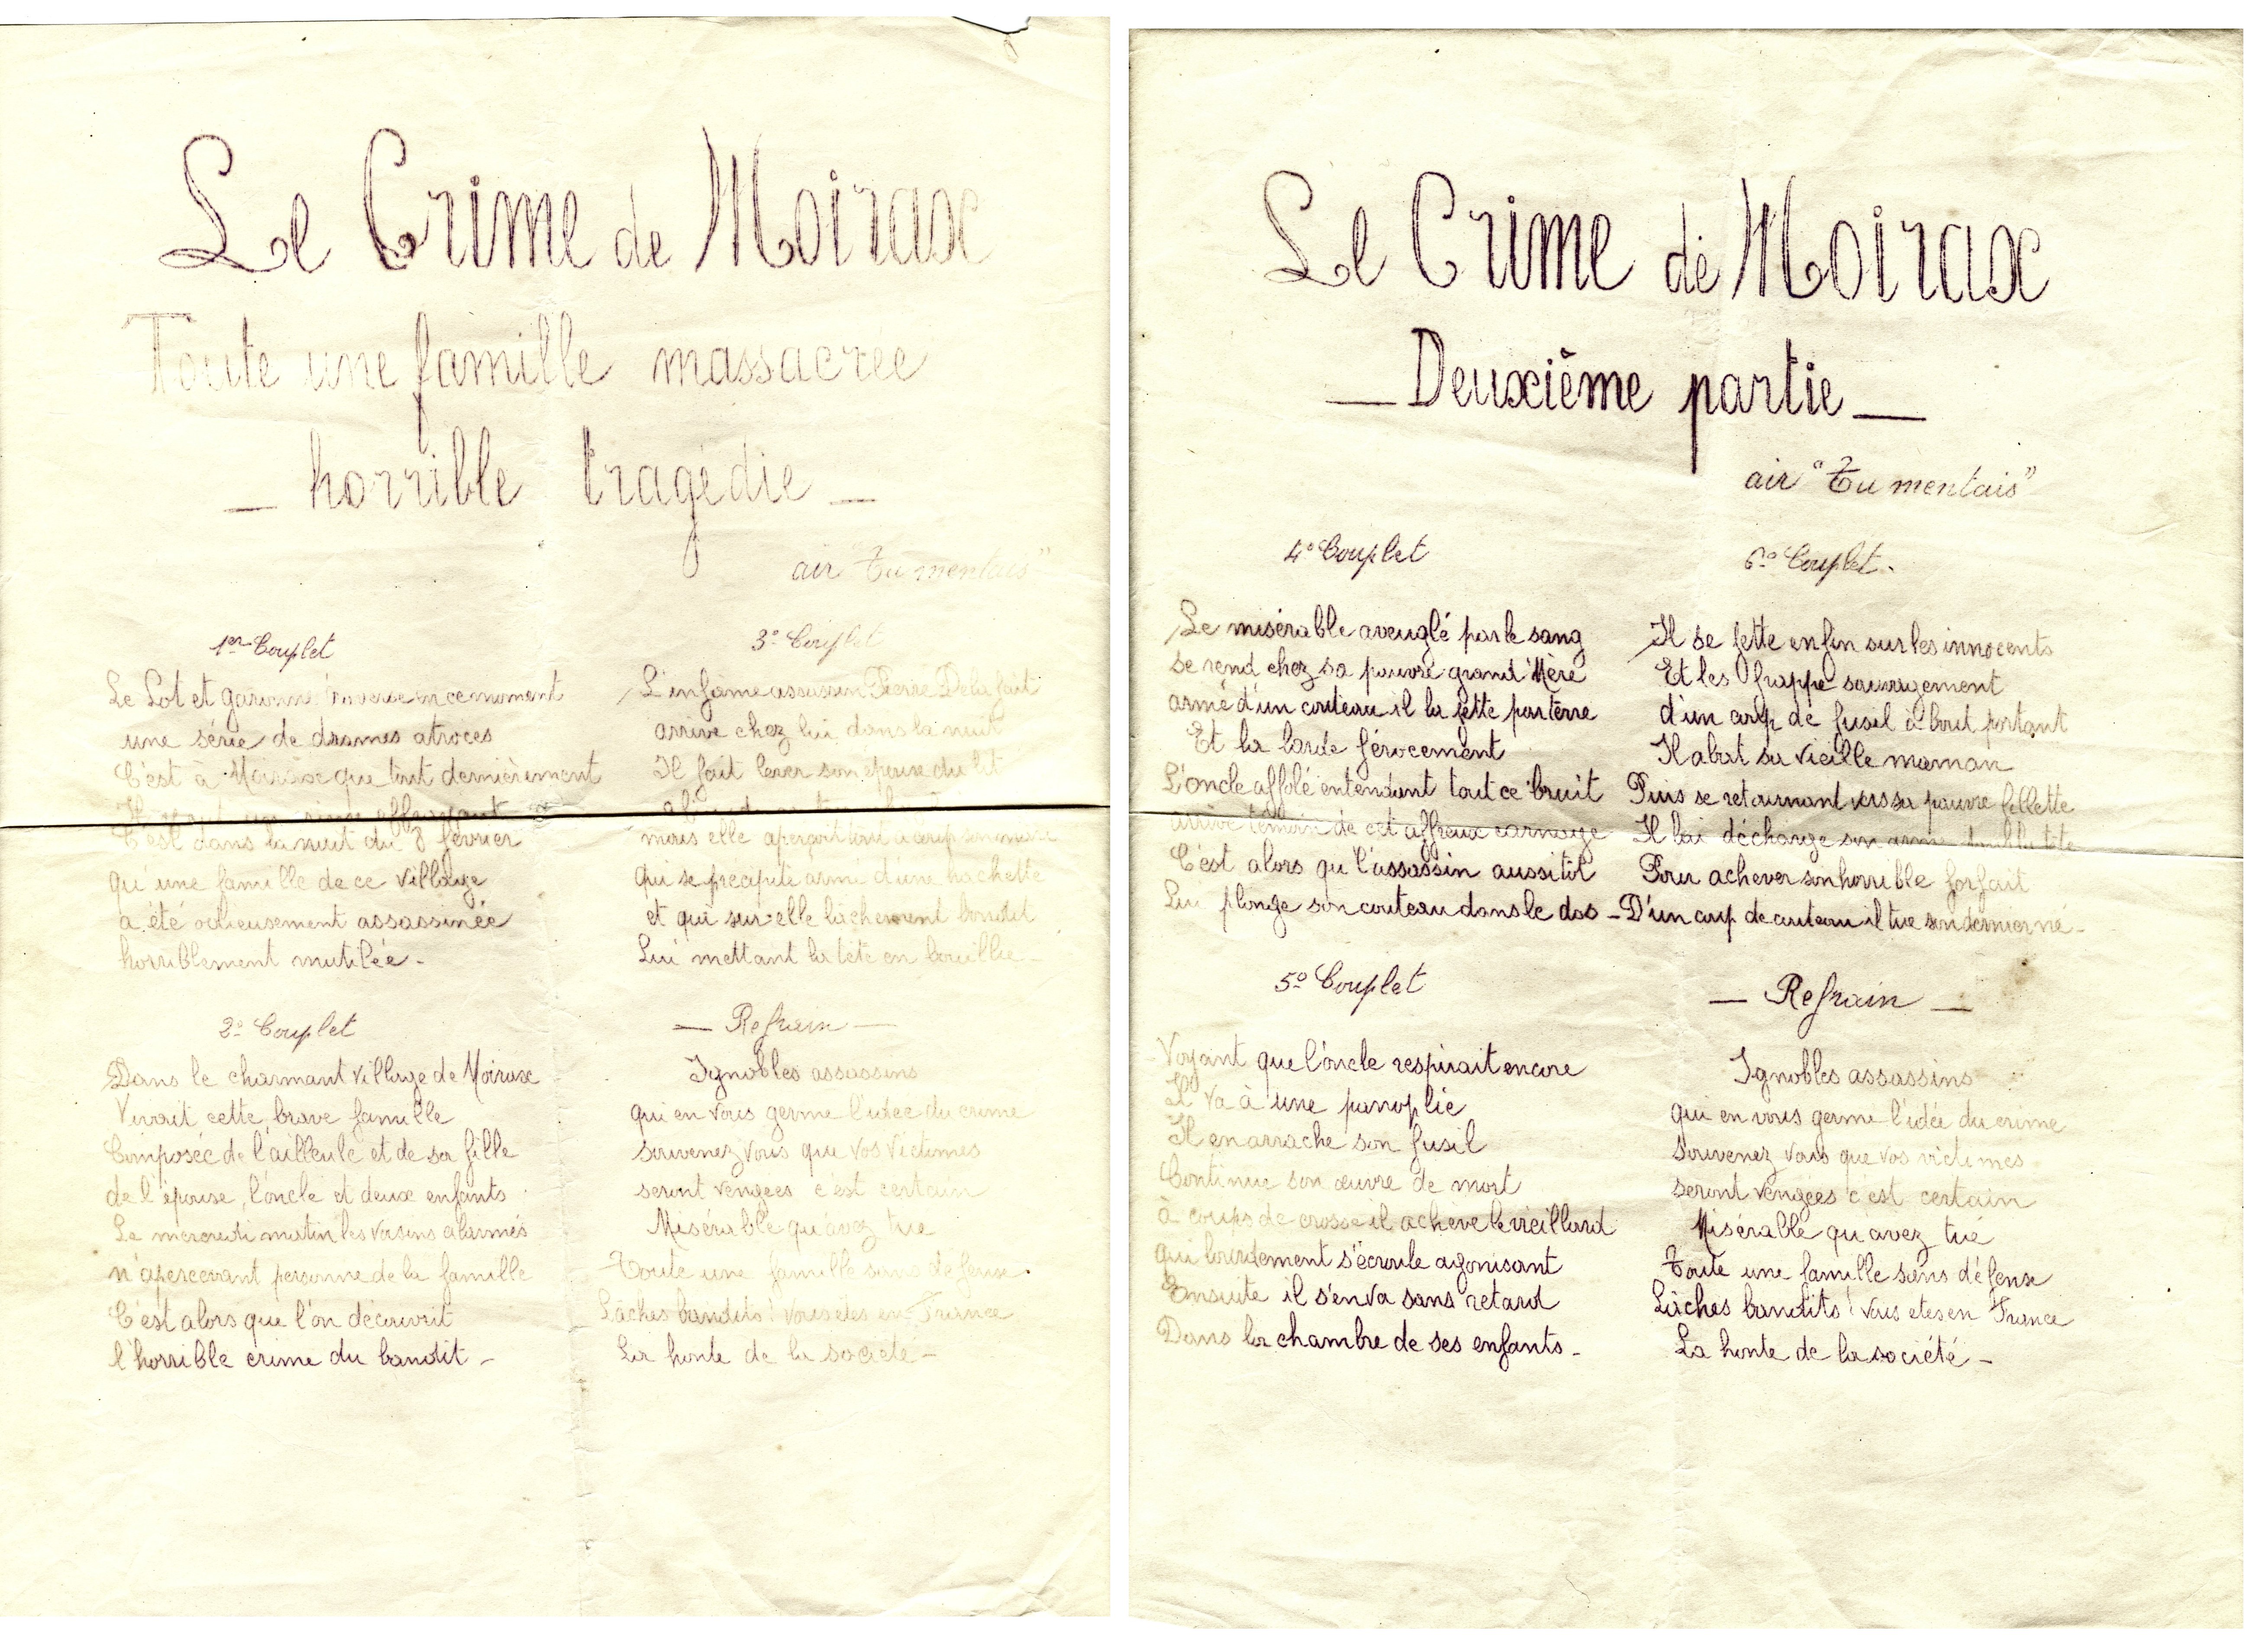 Le Crime de Moirax
Toute une famille massacrée
— horrible tragédie —
air "Tu mentais"
1er Couplet
Le Lot et garonne traverse en ce moment
une série de drames atroces
C'est à Moirax que tout dernièrement
C'est dans la nuit du 8 février
qu'une famille de ce village
a été odieusement assassinée
horriblement mutilée -
2e Couplet
Dans le charmant village de Moirax
Vivait cette brave famille
Composée de l'ailleule et de sa fille
de l'épouse, l'oncle et deux enfants
Le mercredi matin les voisins alarmés
n'apercevant personne de la famille
C'est alors que l'on découvrit
l'horrible crime du bandit -
3e Couplet
L'infâme assassin Pierre Delafait
arrive chez lui dans la nuit
Il fait lever son épouse du lit
mais elle aperçoit tout à coup son mari
qui se précipite armé d'une hachette
et qui sur elle lâchement bondit
Lui mettant la tête en bouillie -
— Refrain —
Ignobles assassins
qui en vous germe l'idée du crime
souvenez vous que vos victimes
seront vengées c'est certain
Misérable qu'avez tué
Toute une famille sans défense.
Lâches bandits ! vous êtes en France
La honte de la société -
Le Crime de Moirax
— Deuxième partie —
air "Tu mentais"
4e Couplet
Le misérable aveuglé par le sang
se rend chez sa pauvre grand'Mère
armé d'un couteau il la jette par terre
Et la larde férocement
L'oncle affolé entendant tout ce bruit
arrive témoin de cet affreux carnage
C'est alors qu'l'assassin aussitôt
Lui plonge son couteau dans le dos -
5e Couplet
Voyant que l'oncle respirait encore
Il va à une panoplie
Il en arrache son fusil
Continue son œuvre de mort
à coups de crosse il achève le vieillard
qui lourdement s'écroule agonisant
Ensuite il s'en va sans retard
Dans la chambre de ses enfants -
6e Couplet -
Il se jette enfin sur les innocents
Et les frappe sauvagement
d'un coup de fusil à bout portant
Il abat sa vieille maman
Puis se retournant vers sa pauvre fillette
Il lui décharge son arme dans la tête
Pour achever son horrible forfait
D'un coup de couteau il tue son dernier né -
— Refrain —
Ignobles assassins
qui en vous germe l'idée du crime
souvenez vous que vos victimes
seront vengées c'est certain
Misérable qu'avez tué
Toute une famille sans défense
Lâches bandits ! vous etes en France
La honte de la société -